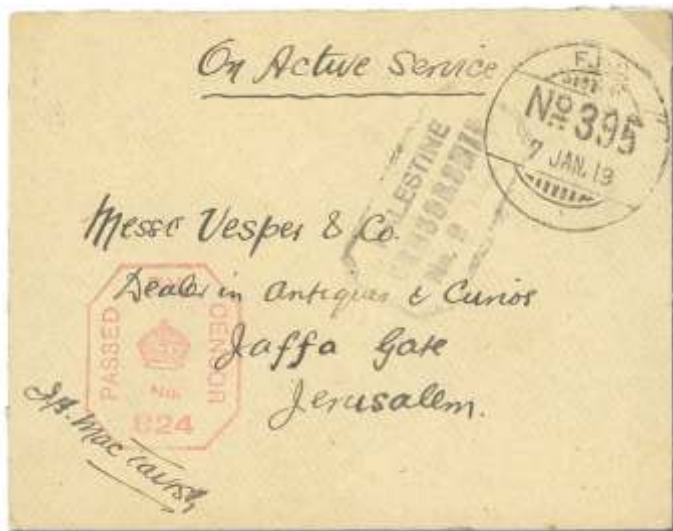 On Active Service
F.P.O.
No 395
7 JAN. 19
PALESTINE
CENSORSHIP
No. 2
Messr Vesper & Co.
Dealer in Antiques & Curios
Jaffa Gate
Jerusalem.
PASSED
BY
CENSOR
No.
824